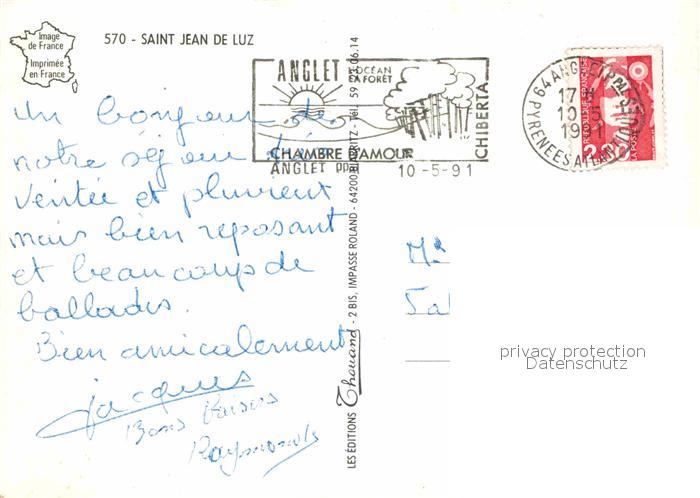 Image
de France
Imprimée
en France
570 - SAINT JEAN DE LUZ
ANGLET
L'OCÉAN
LA FORÊT
CHIBERTA
CHAMBRE D'AMOUR
ANGLET PPAL
10-5-91
17 H
10-5
1991
64 ANGLET PPAL
PYRENEES ATLANTIQUES
REPUBLIQUE FRANÇAISE
LA POSTE
Un bonjour de
notre séjour très
Ventée et pluvieux
mais bien reposant
et beaucoup de
ballades.
Bien amicalement
Jacques
Bons Baisers
Raymonde
LES ÉDITIONS Thouand - 2 BIS, IMPASSE ROLAND - 64200 BIARRITZ - Tél. 59
06.14
privacy protection
Datenschutz